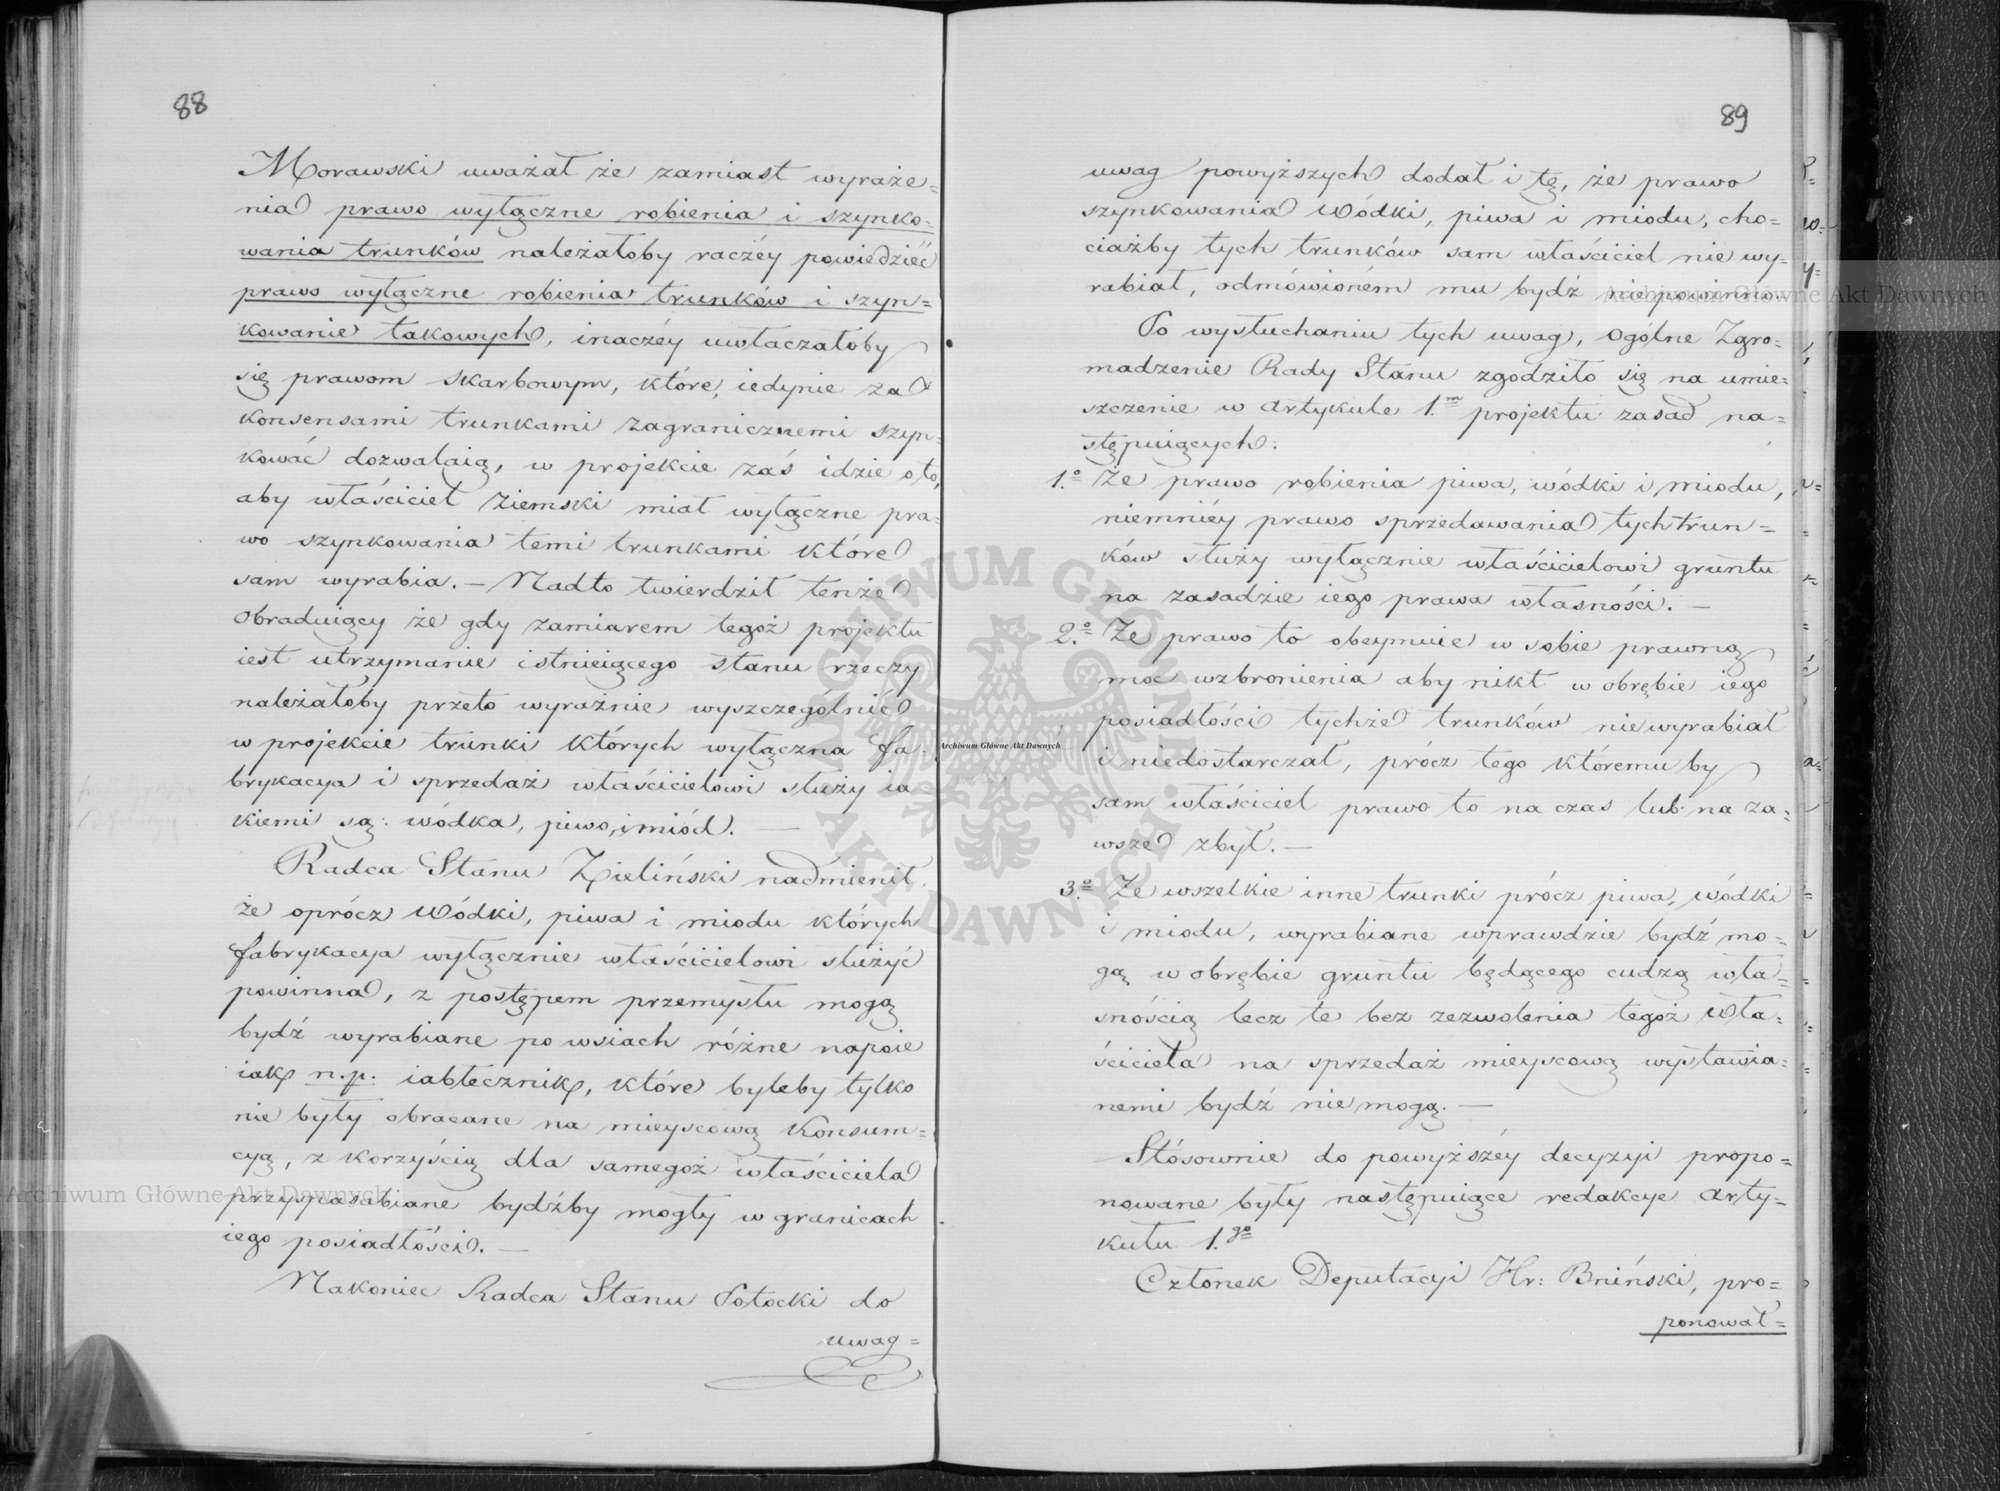 88
Morawski uważał że zamiast wyraże=
nia prawo wyłączne robienia i szynko=
wania trunków należałoby raczéy powiedzieć
prawo wyłączne robienia trunków i szyn=
kowanie takowych, inaczéy uwłaczałoby
się prawom skarbowym, które, iedynie za
konsensami trunkami zagranicznemi szyn=
kować dozwalaią, w projekcie zaś idzie o to,
aby właściciel ziemski miał wyłączne pra=
wo szynkowania temi trunkami które
sam wyrabia. — Nadto twierdził tenże
Obraduiący że gdy zamiarem tegoż projektu
iest utrzymanie istnieiącego stanu rzeczy
należałoby przeto wyraźnie wyszczególnić
w projekcie trunki których wyłączna fa=
brykacya i sprzedaż właścicielowi służy ia
kiemi są: wódka, piwo, i miód. —
Radca Stanu Zieliński nadmienił,
że oprócz Wódki, piwa i miodu których
fabrykacya wyłącznie właścicielowi służyć
powinna, z postępem przemysłu mogą
bydź wyrabiane po wsiach różne napoie
iak n.p. iabłecznik, które byleby tylko
nie były obracane na mieyscową Konsum=
cyą, z korzyścią dla samegoż właściciela
przysposabiane bydźby mogły w granicach
iego posiadłości. —
Nakoniec Radca Stanu Potocki do
uwag=
89
uwag powyższych dodał i tę, że prawo
szynkowania Wódki, piwa i miodu, cho=
ciażby tych trunków sam właściciel nie wy=
rabiał, odmówioném mu bydź niepowinno.
Po wysłuchaniu tych uwag, Ogólne Zgro=
madzenie Rady Stanu zgodziło się na umie=
szczenie w Artykule 1.m projektu zasad na=
stępuiących:
1.o Że prawo robienia piwa, wódki i miodu,
niemniéy prawo sprzedawania tych trun=
ków służy wyłącznie właścicielowi gruntu
na zasadzie iego prawa własności. —
2.o Że prawo to obeymuie w sobie prawną
moc wzbronienia aby nikt w obrębie iego
posiadłości tychże trunków niewyrabiał
i niedostarczał, prócz tego któremuby
sam właściciel prawo to na czas lub na za=
wsze zbył. —
3.o Że wszelkie inne trunki prócz piwa, wódki
i miodu, wyrabiane wprawdzie bydź mo=
gą w obrębie gruntu będącego cudzą wła=
snością lecz te bez zezwolenia tegoż Wła=
ściciela na sprzedaż mieyscową wystawia=
nemi bydź nie mogą. —
Stósownie do powyższéy decyzyi propo=
nowane były następuiące redakcye Arty=
kułu 1.go
Członek Deputacyi Hr: Bniński, pro=
ponował=
Archiwum Główne Akt Dawnych
Archiwum Główne Akt Dawnych
Archiwum Główne Akt Dawnych
ARCHIWUM GŁÓWNE AKT DAWNYCH